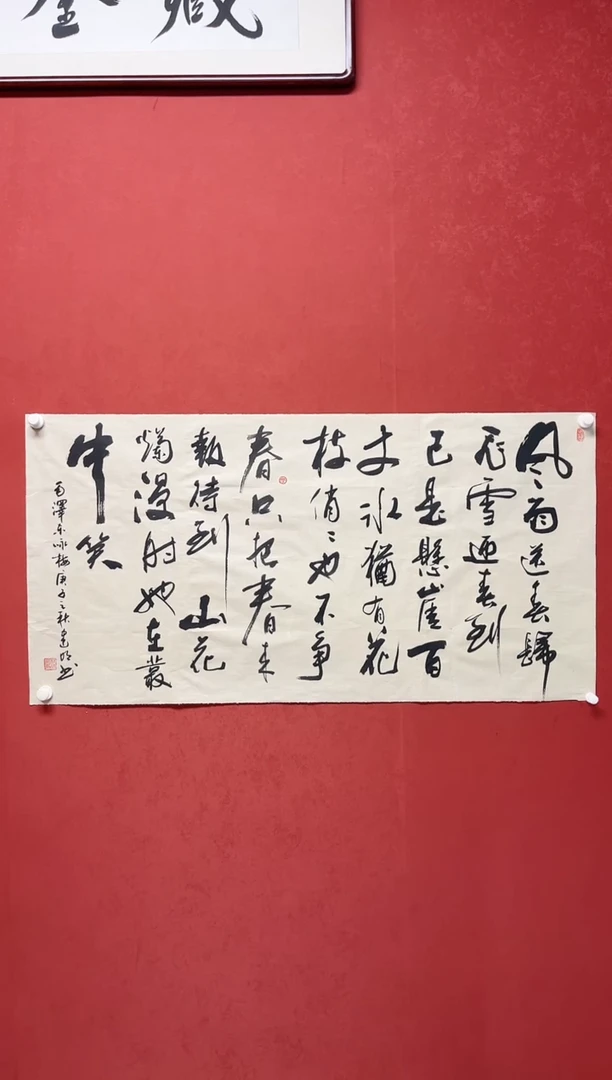 风雨送春歸
飛雪迎春到
已是懸崖百
丈冰猶有花
枝俏〻也不争
春只把春来
報待到山花
爛漫时她在叢
中笑
毛澤东咏梅庚子之秋建明书